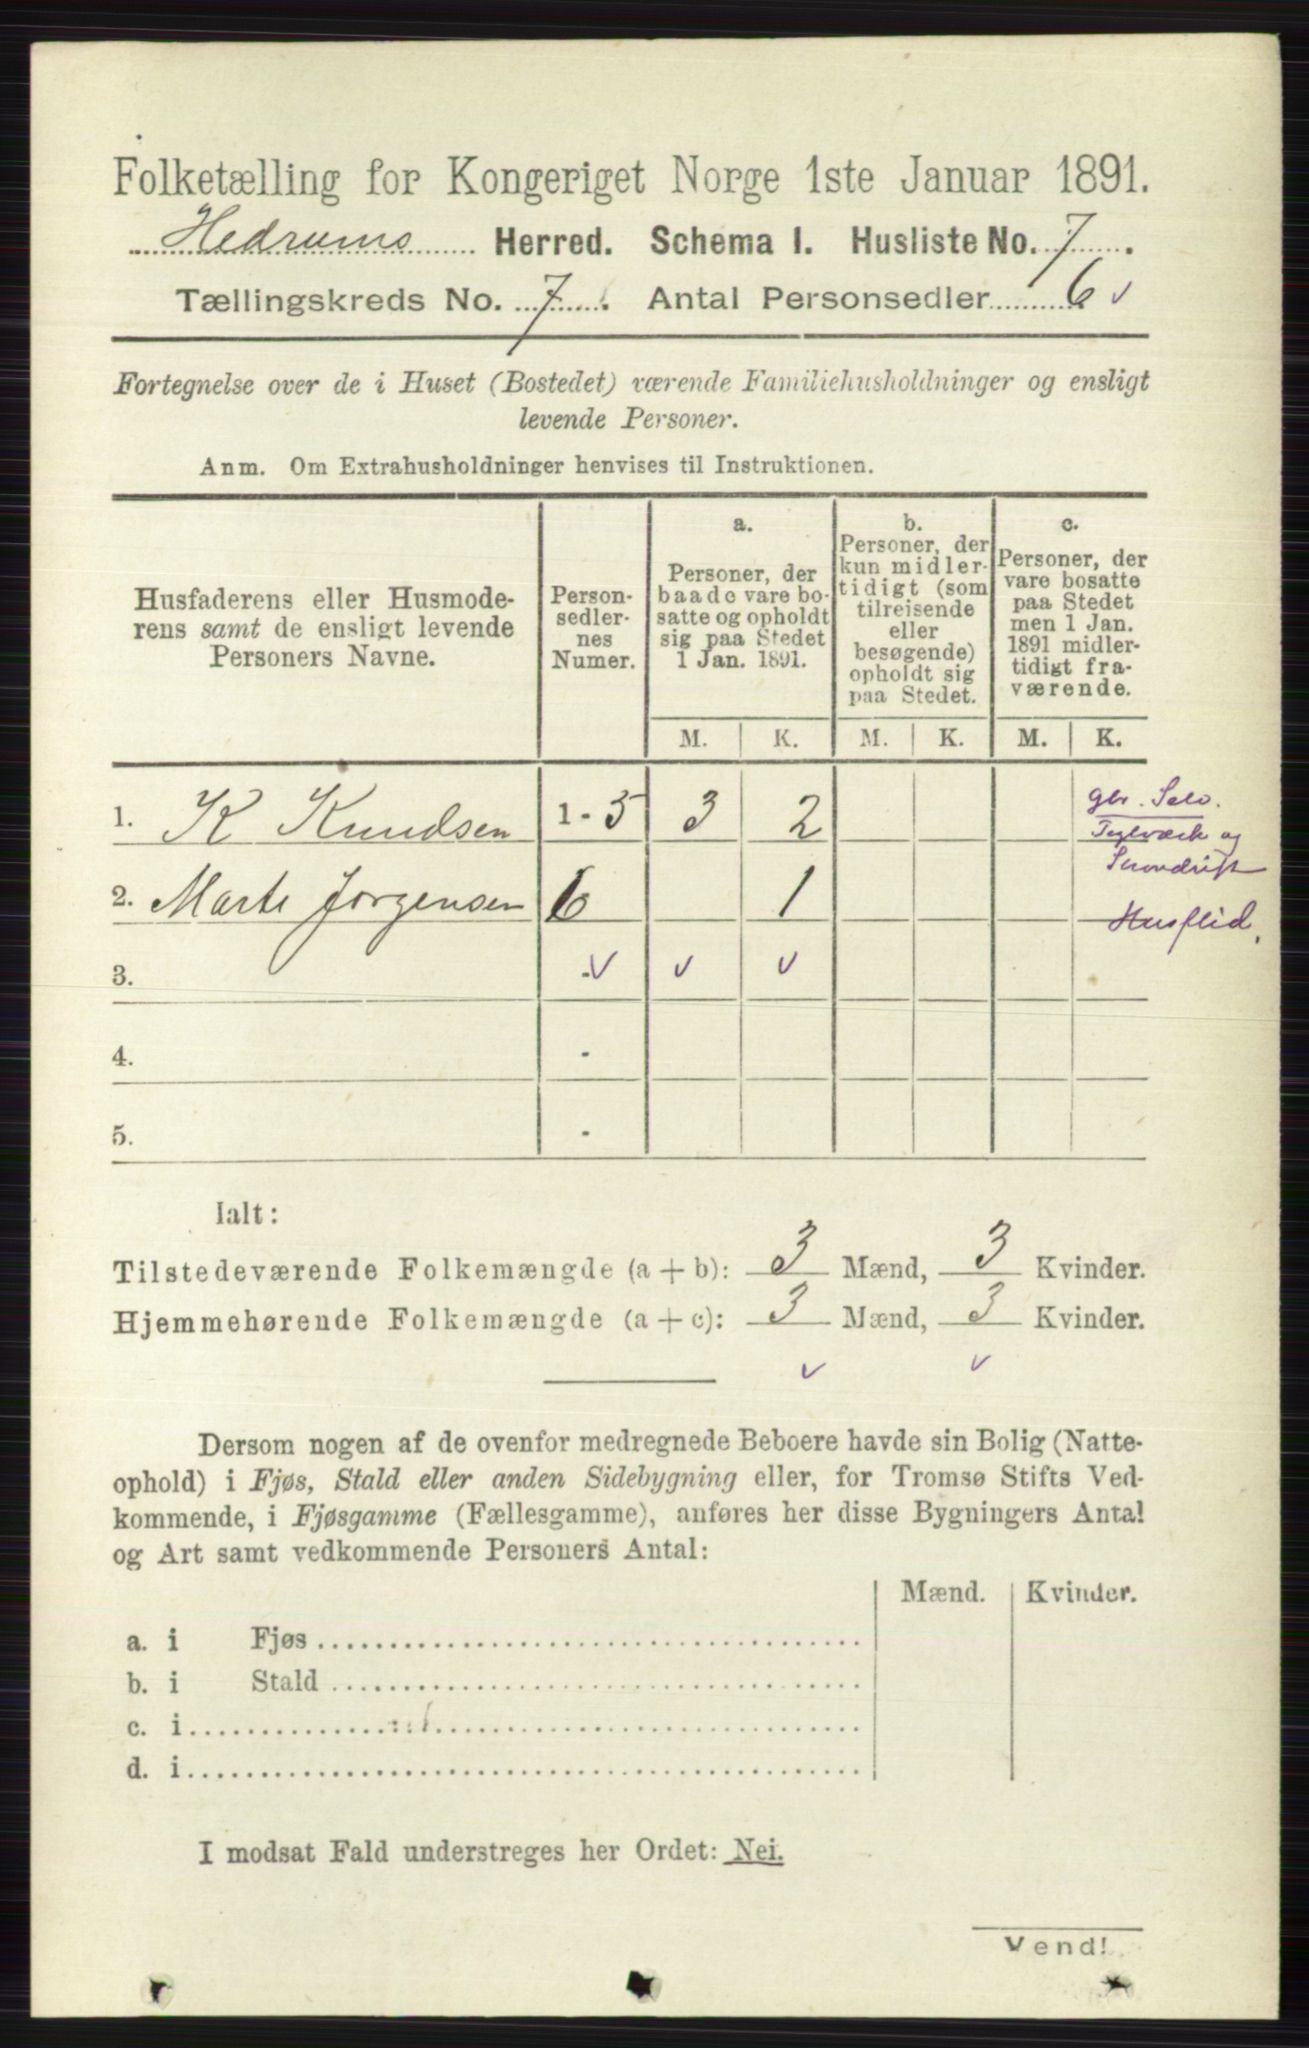 Folketælling for Kongeriget Norge 1ste Januar 1891.
Hedrums Herred. Schema I. Husliste No. 7.
Tællingskreds No. 7. Antal Personsedler 6 v
Fortegnelse over de i Huset (Bostedet) værende Familiehusholdninger og ensligt
levende Personer.
Anm. Om Extrahusholdninger henvises til Instruktionen.
Husfaderens eller Husmode-
rens samt de ensligt levende
Personers Navne.
Person-
sedler-
nes
Numer.
a.
Personer, der
baade vare bo-
satte og opholdt
sig paa Stedet
1 Jan. 1891.
b.
Personer, der
kun midler-
tidigt (som
tilreisende
eller
besøgende)
opholdt sig
paa Stedet.
c.
Personer, der
vare bosatte
paa Stedet
men 1 Jan.
1891 midler-
tidigt fra-
værende.
M. K. M. K. M. K.
1. K Knudsen 1 - 5 3 2
Gbr. Selv.
Teglværk og
2. Marte Jorgensen 6 1
Husflid.
3. - v v v
4. -
5. -
Ialt:
Tilstedeværende Folkemængde (a + b): 3 Mænd, 3 Kvinder.
Hjemmehørende Folkemængde (a + c): 3 Mænd, 3 Kvinder.
v v
Dersom nogen af de ovenfor medregnede Beboere havde sin Bolig (Natte-
ophold) i Fjøs, Stald eller anden Sidebygning eller, for Tromsø Stifts Ved-
kommende, i Fjøsgamme (Fællesgamme), anføres her disse Bygningers Antal
og Art samt vedkommende Personers Antal:
Mænd. Kvinder.
a. i Fjøs
b. i Stald
c. i
d. i
I modsat Fald understreges her Ordet: Nei.
Vend!